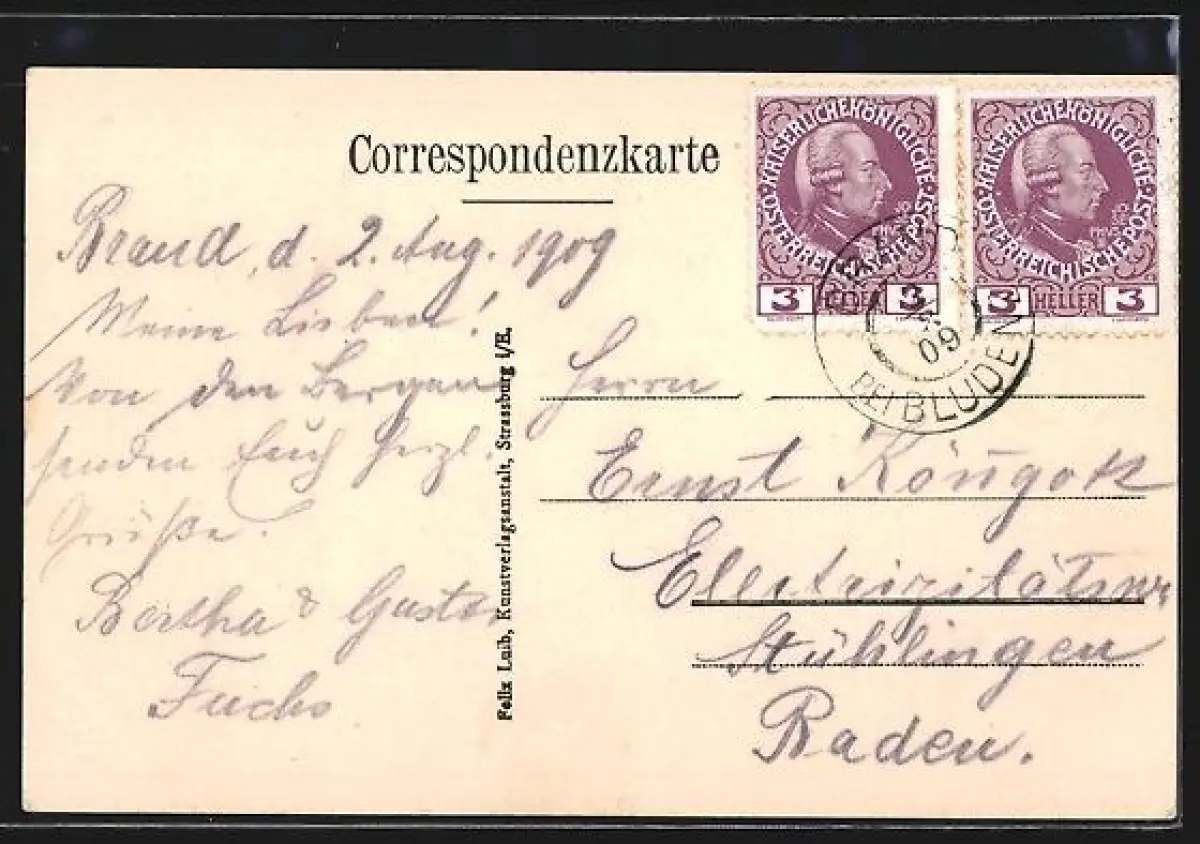 Correspondenzkarte
Brand, d. 2. Aug. 1909
Meine Lieben!
Von den Bergen
senden Euch herzl.
Grüße.
Bertha & Gustav
Fuchs
Felix Luib, Kunstverlagsanstalt, Strassburg i/E.
ÖSTERREICHISCHE POST · KAISERLICHE KÖNIGLICHE
3 HELLER 3
ÖSTERREICHISCHE POST · KAISERLICHE KÖNIGLICHE
3 HELLER 3
BRAND
09
BEI BLUDEN
Herrn
Ernst
Electrizitätsw
Stühlingen
Baden.